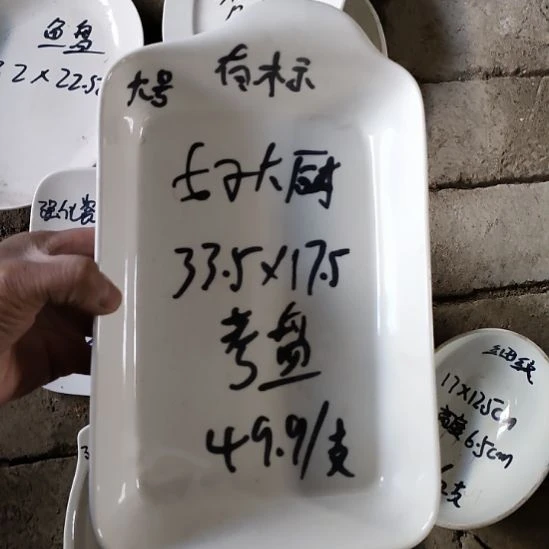 鱼盘
2×22.5
大号 有标
33.5×17.5
考盘
49.9/支
强化瓷
细线
17×12.5cm
高度6.5cm
支